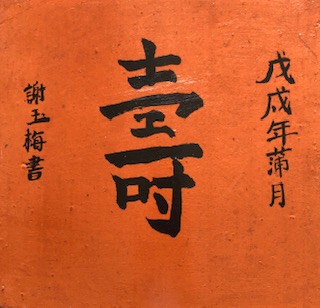 戊戌年蒲月
壽
謝玉梅書